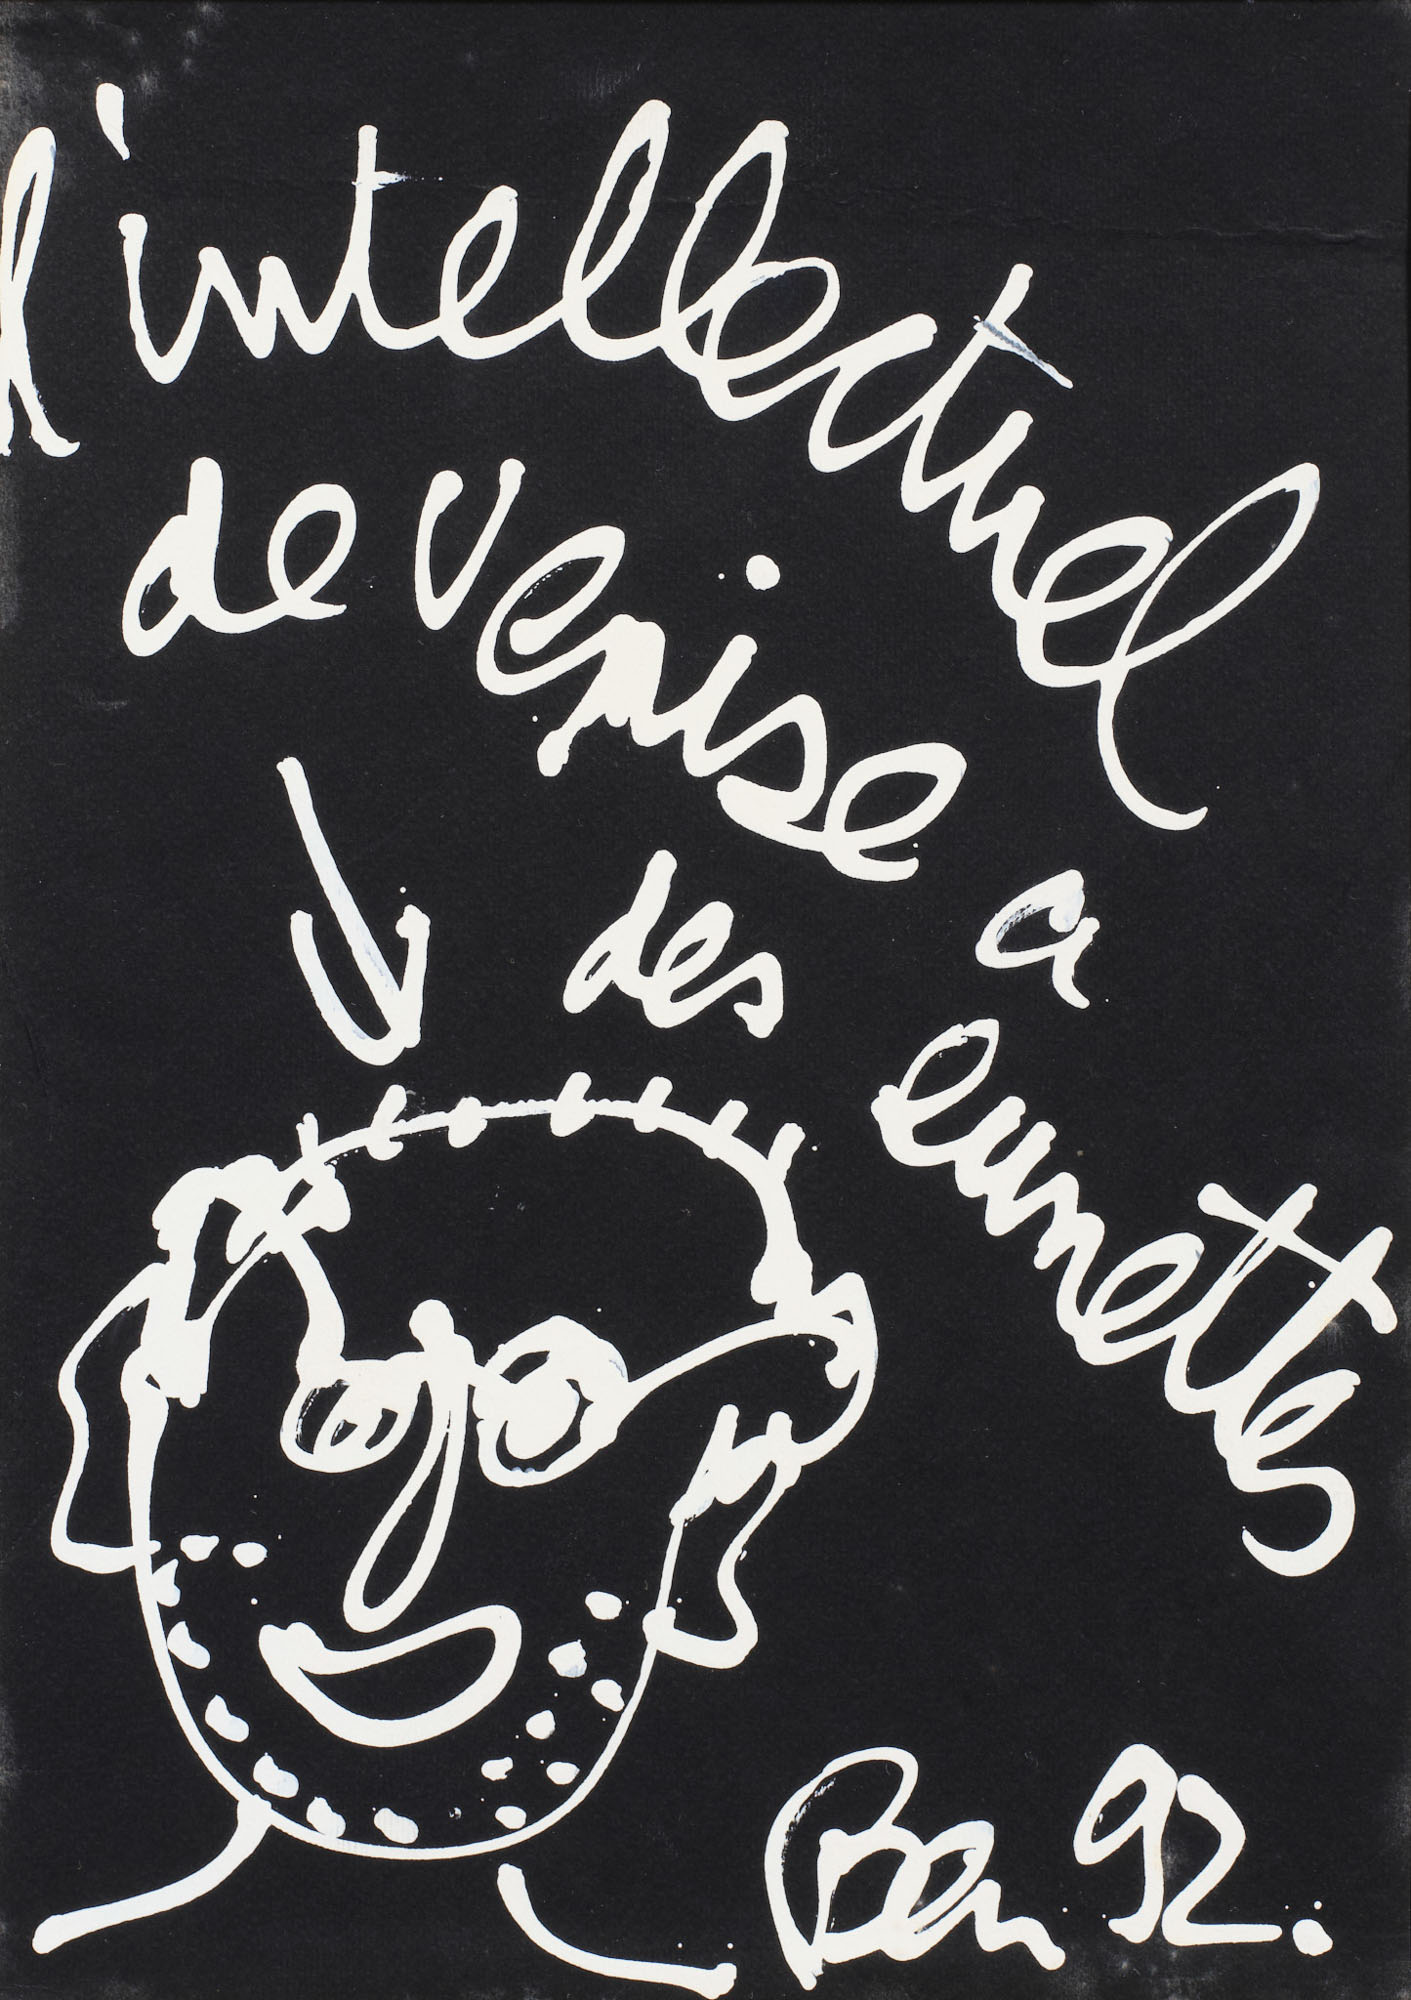 l'intellectuel
de venise a
des lunettes
Ben 92.